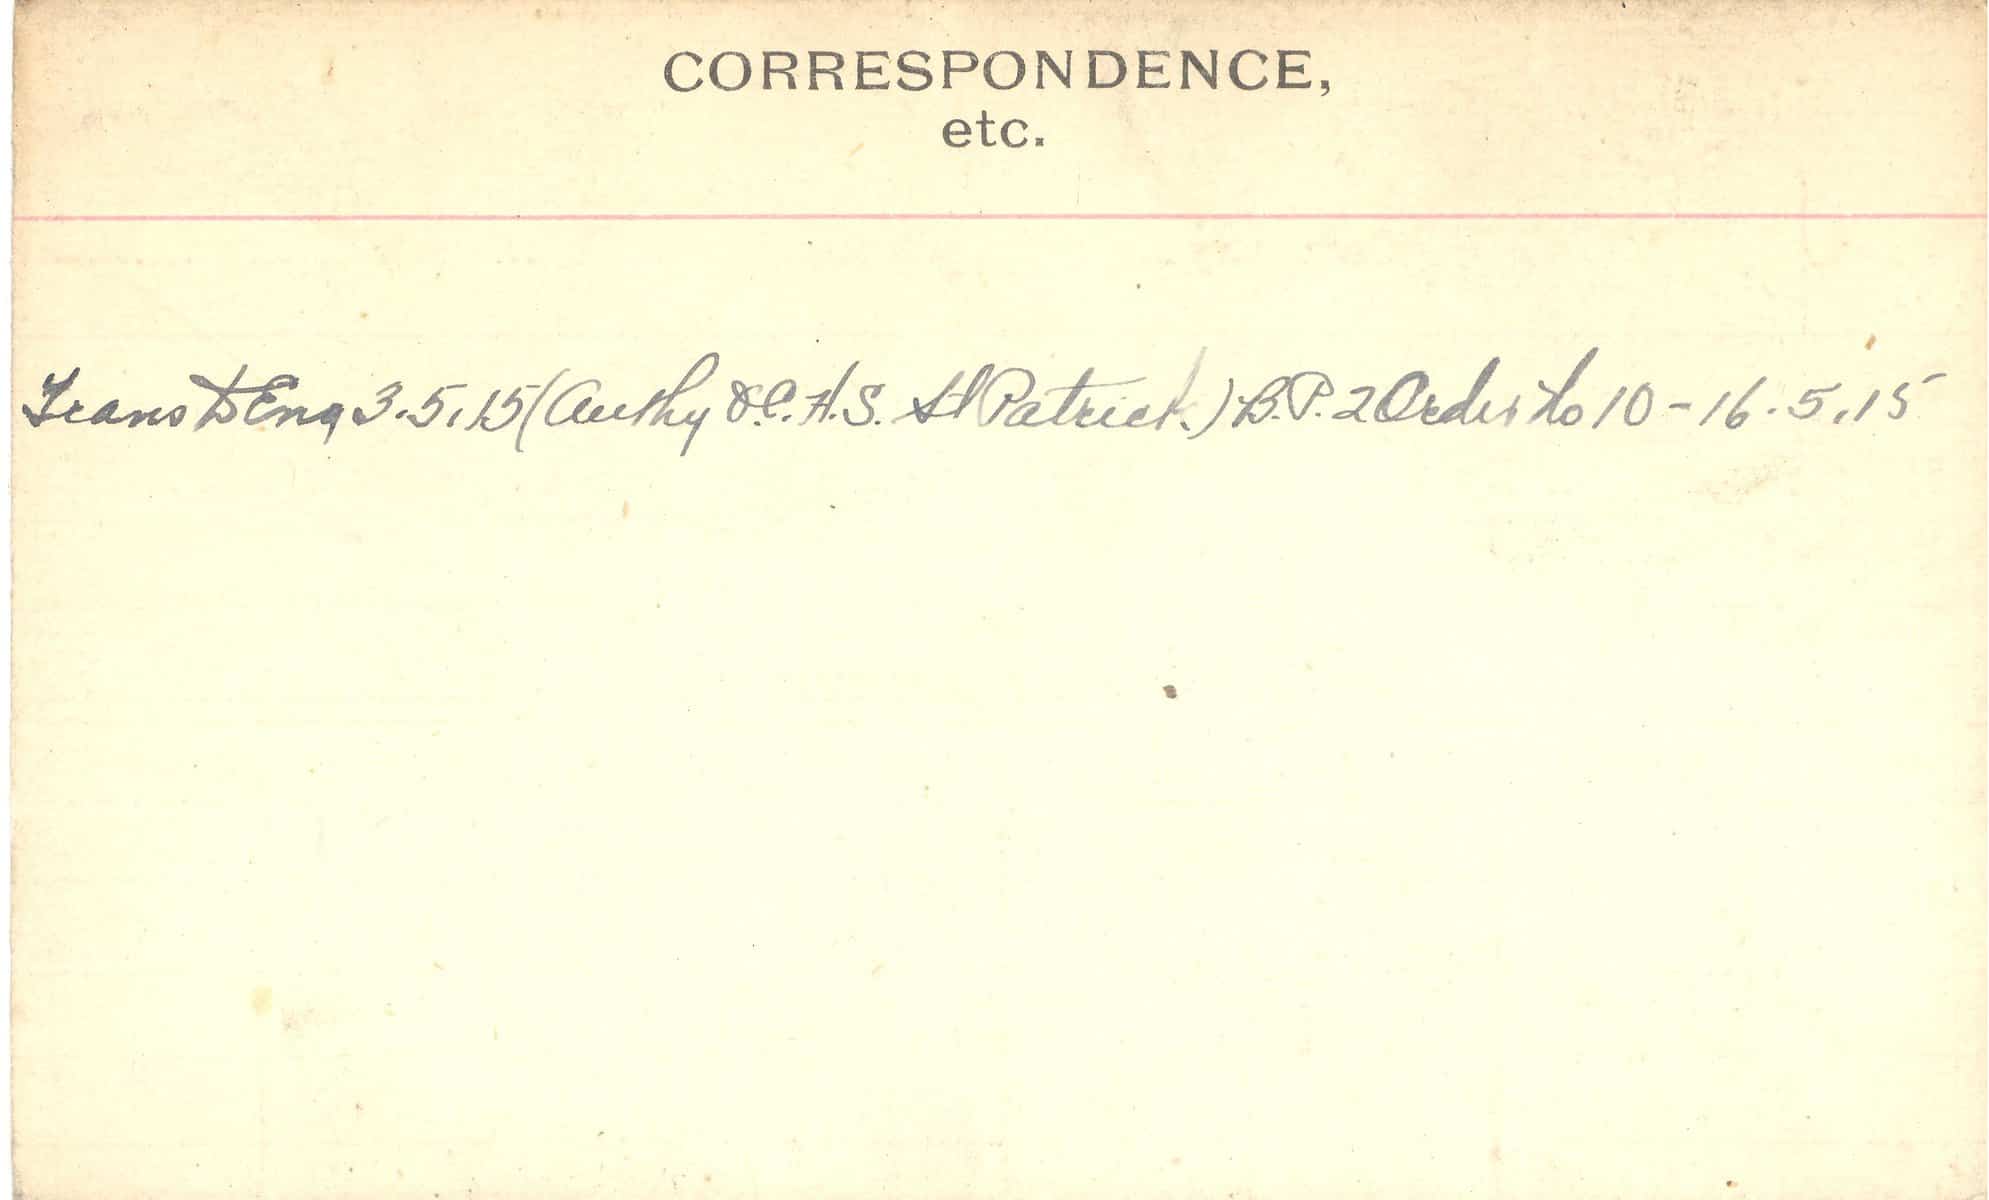 CORRESPONDENCE,
etc.
Trans to Eng 3.5.15 (Authy O.C. H.S. St Patrick.) B.P. 2 Order No 10 - 16.5.15